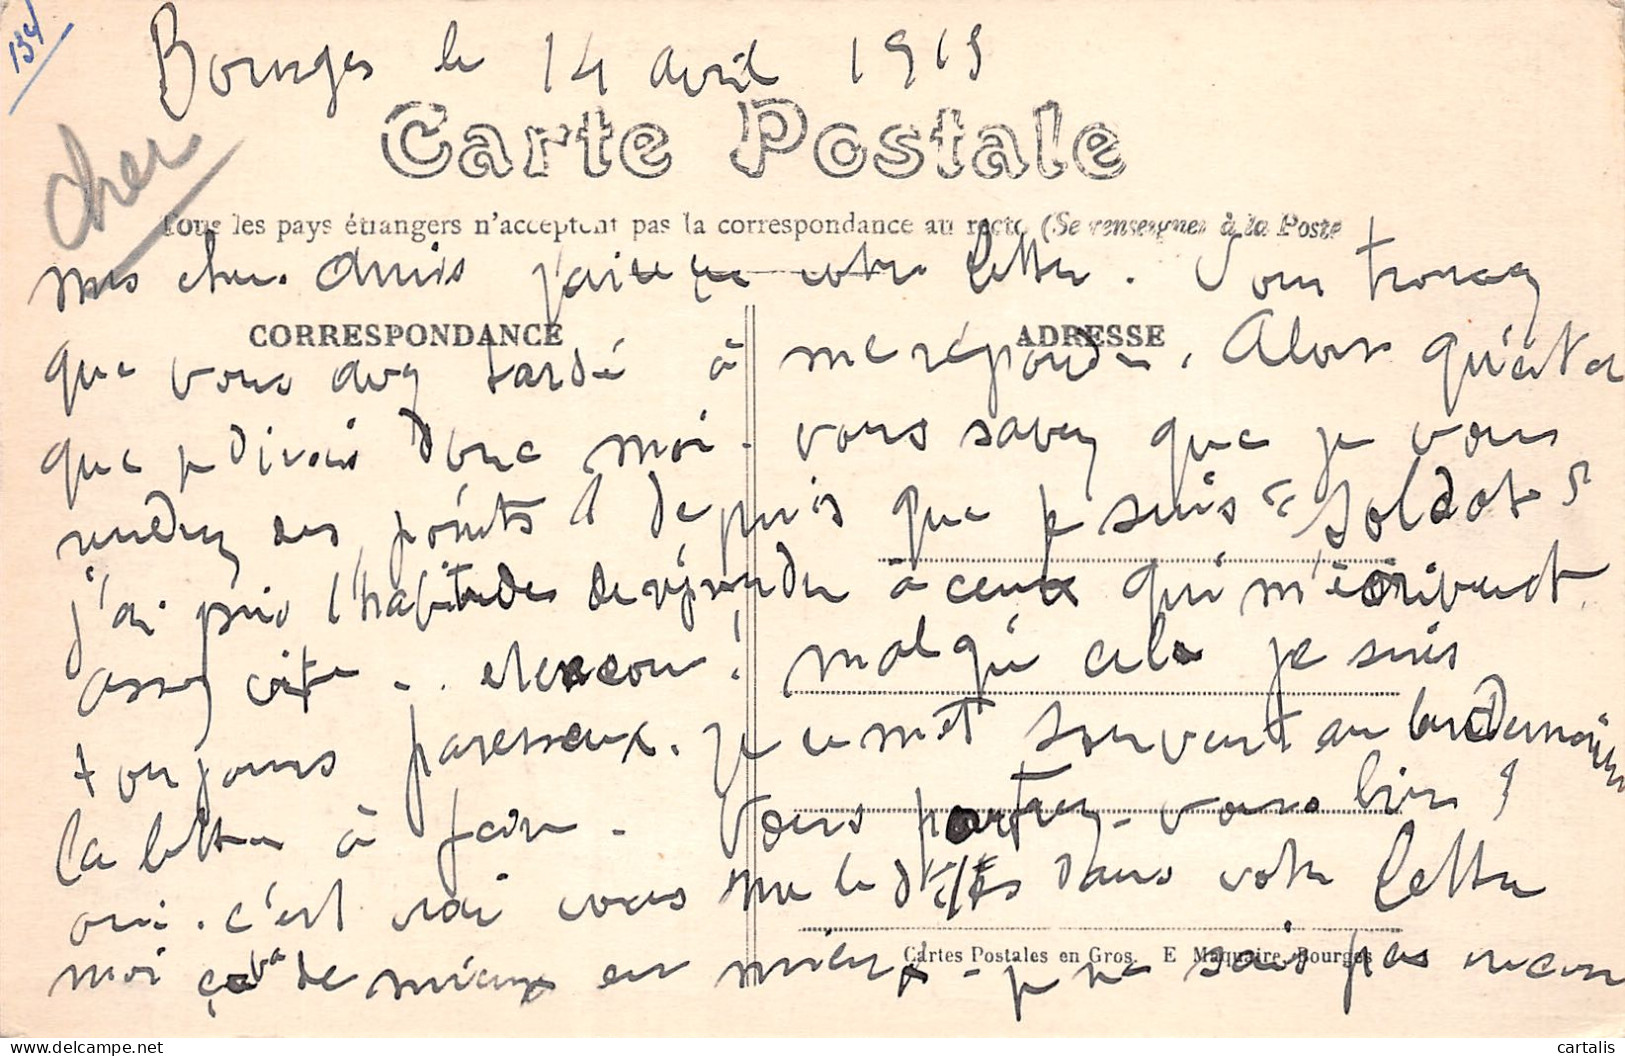 134
Bourges le 14 avril 1915
Cher
Carte Postale
Tous les pays étrangers n'acceptent pas la correspondance au recto (Se renseigner à la Poste
mes cher. amis j'ai reçu votre lettre. Vous trouvez
CORRESPONDANCE
ADRESSE
que vous avez tardé à me répondre. Alors qu'est ce
que je dirais donc moi. vous savez que je vous
rendrez des points depuis que je suis "soldat"
j'ai pris l'habitude de répondre à ceux qui m'écrivent
assez vite .. et encore ! malgré cela je suis
toujours paresseux. je remet souvent au lendemain
la lettre à faire. Vous portez-vous bien ?
oui. c'est vrai vous me le dites dans votre lettre
Cartes Postales en Gros. E Maquaire, Bourges
moi ça va de mieux en mieux. je ne sais pas encore
cartalis